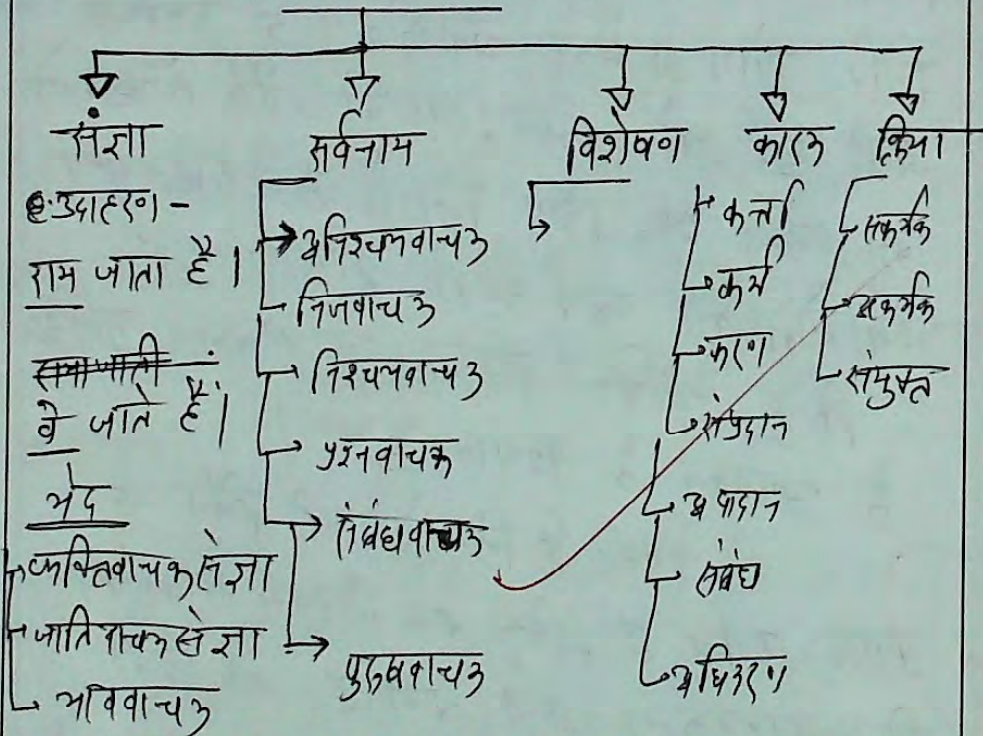 संज्ञा
उदाहरण -
राम जाता है।
वे जाते हैं।
भेद
व्यक्तिवाचक संज्ञा
जातिवाचक संज्ञा
भाववाचक
सर्वनाम
अनिश्चयवाचक
निजवाचक
निश्चयवाचक
प्रश्नवाचक
संबंधवाचक
पुरुषवाचक
विशेषण
कारक
कर्त्ता
कर्म
करण
संप्रदान
अपादान
संबंध
अधिकरण
क्रिया
सकर्मक
अकर्मक
संयुक्त